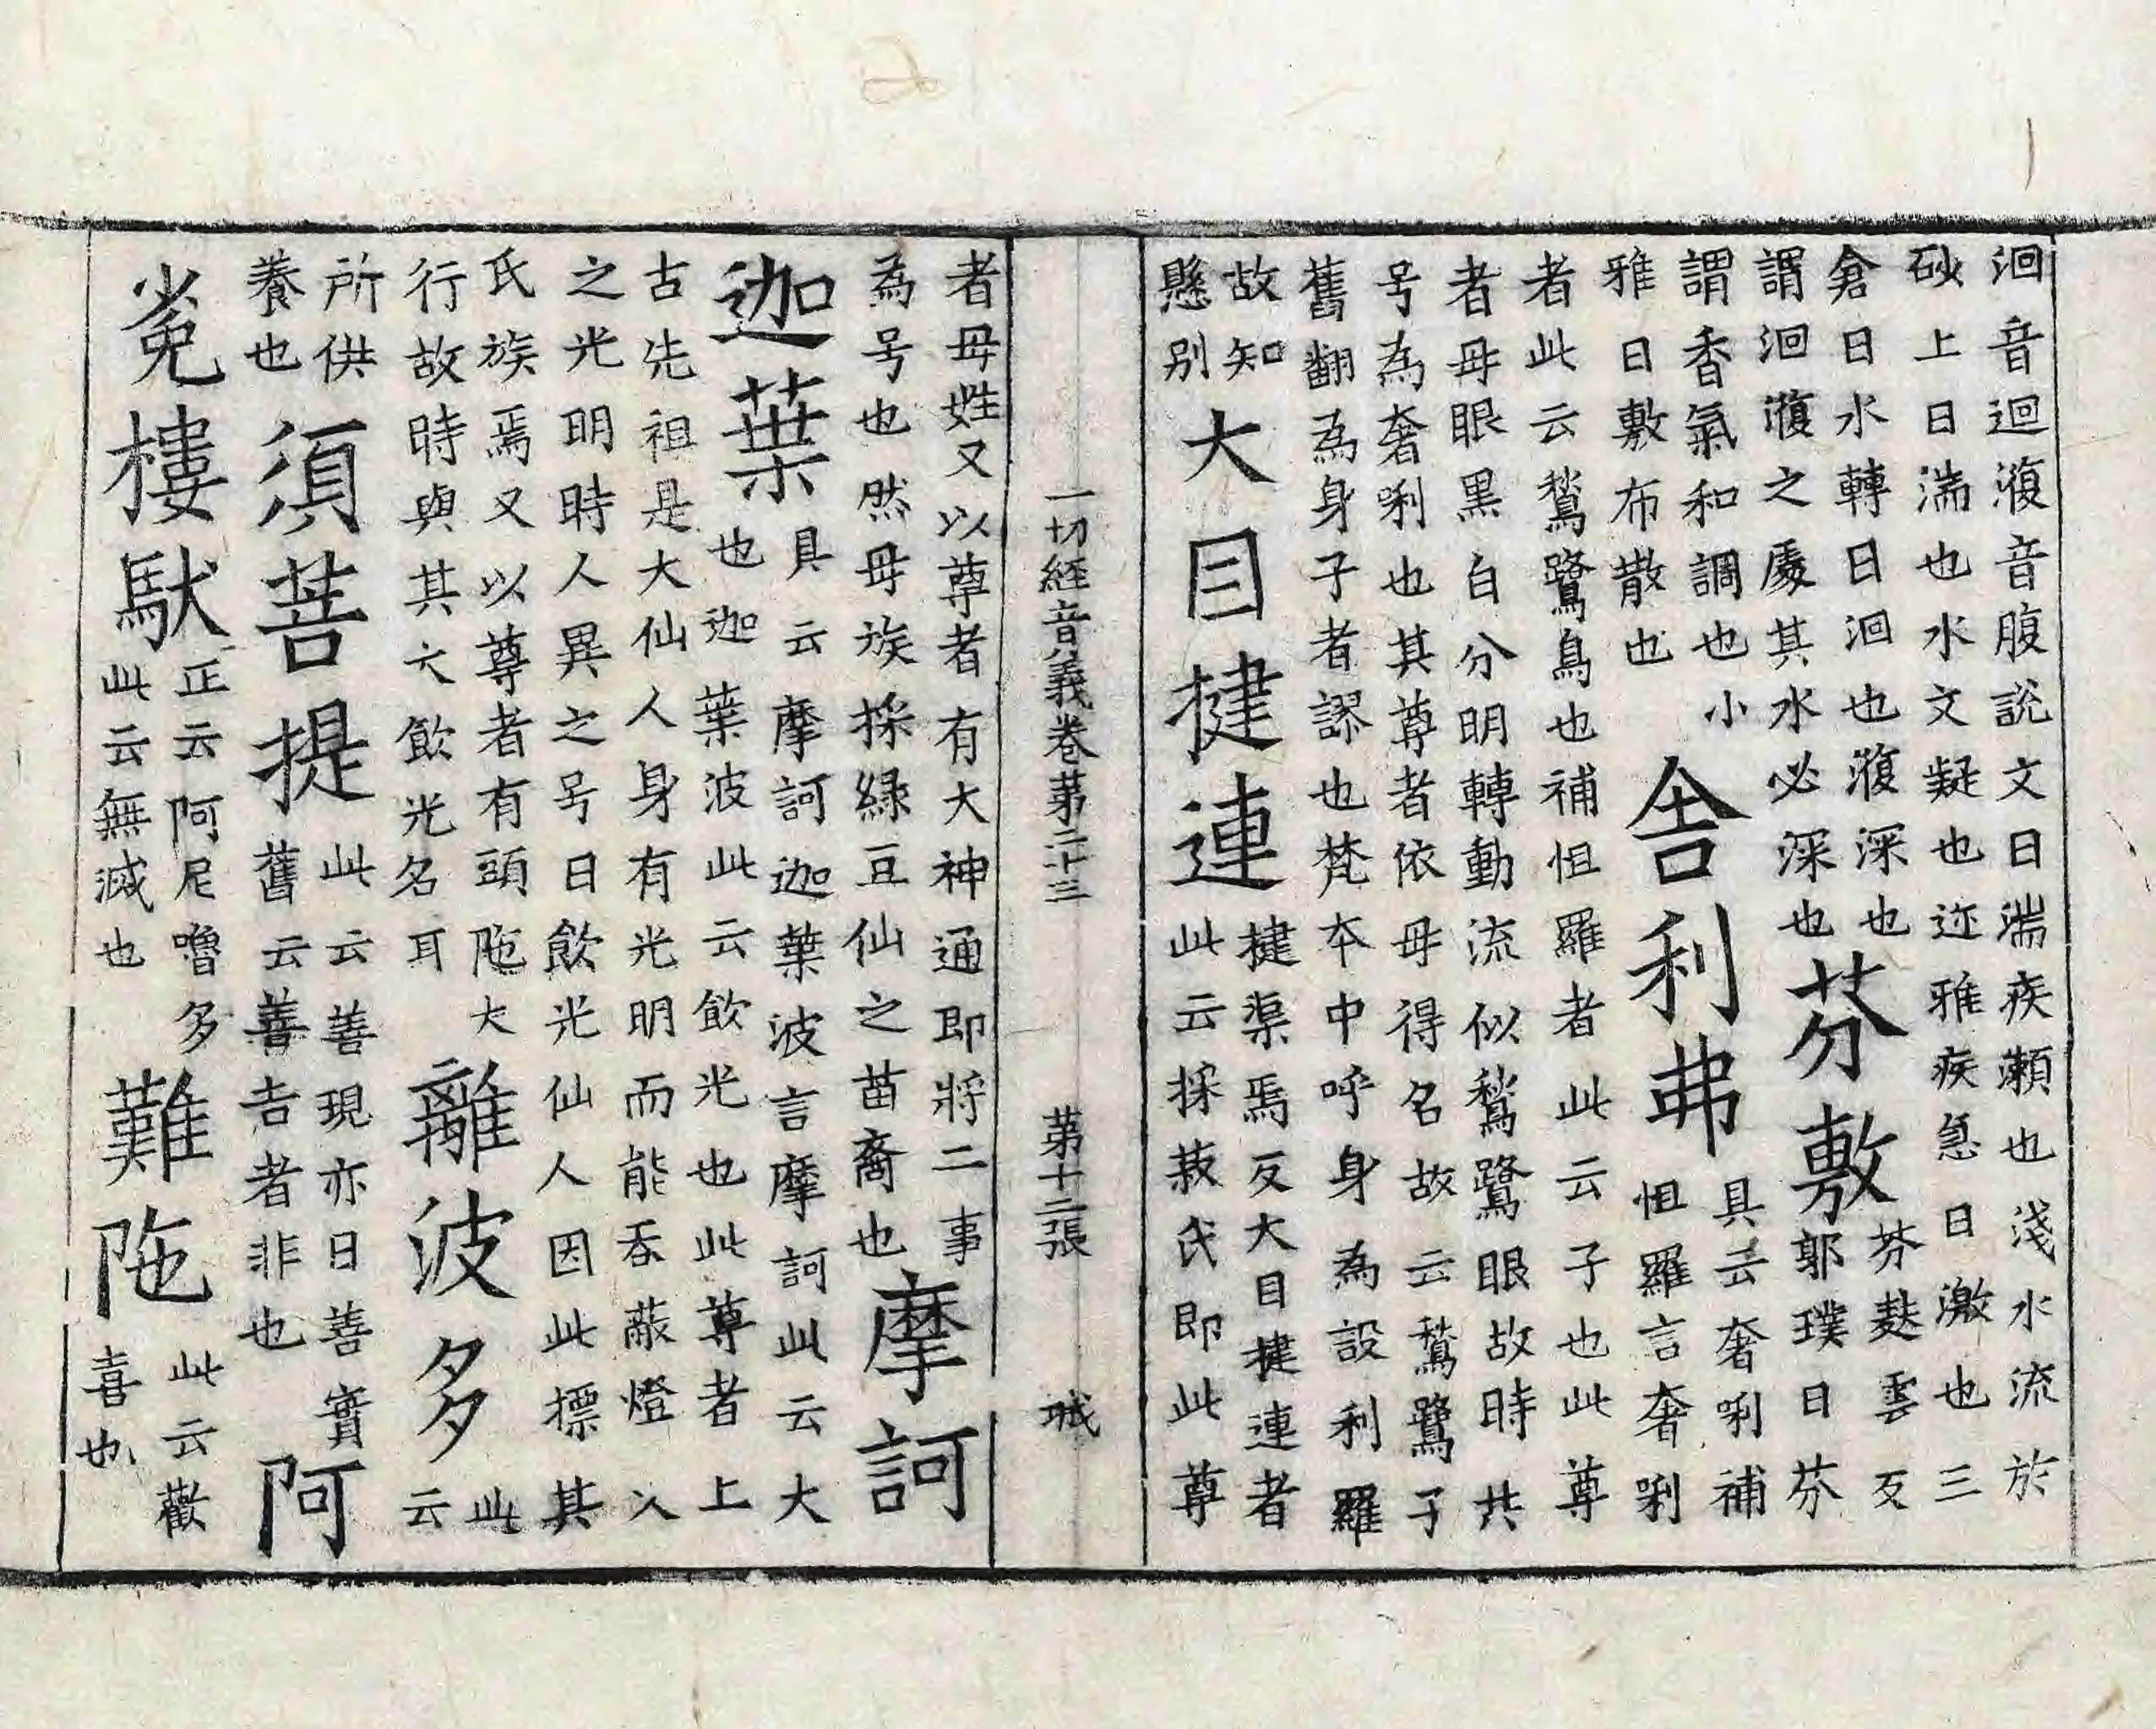 洄音迴澓音腹說文曰湍疾瀨也淺水流於
砂上曰湍也水文凝也迩雅疾急曰激也三
倉曰水轉曰洄也澓深也芬敷芬麩雲反
謂洄澓之處其水必深也郭璞曰芬
謂香氣和調也小舍利弗具云奢唎補
雅曰敷布散也怛羅言奢唎
者此云鶖鷺鳥也補怛羅者此云子也此尊
者母眼黑白分明轉動流似鶖鷺眼故時共
号為奢唎也其尊者依母得名故云鶖鷺子
舊翻為身子者謬也梵本中呼身為設利羅
故知大目揵連揵渠焉反大目揵連者
懸別此云採菽氏即此尊
一切經音義卷苐二十三 苐十二張 城
者母姓又以尊者有大神通即將二事
為号也然母族採綠豆仙之苗裔也摩訶
迦葉具云摩訶迦葉波言摩訶此云大
也迦葉波此云飲光也此尊者上
古先祖是大仙人身有光明而能吞蔽燈火
之光明時人異之号曰飲光仙人因此標其
氏族焉又以尊者有頭陁大離波多此
行故時與其六飲光名耳云
所供須菩提此云善現亦曰善實阿
養也舊云善吉者非也
㝹樓馱正云阿尼嚕多難陁此云歡
此云無滅也喜也